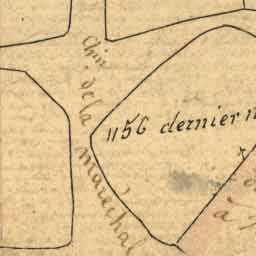 Chin de la maréchal
1156 dernier
à